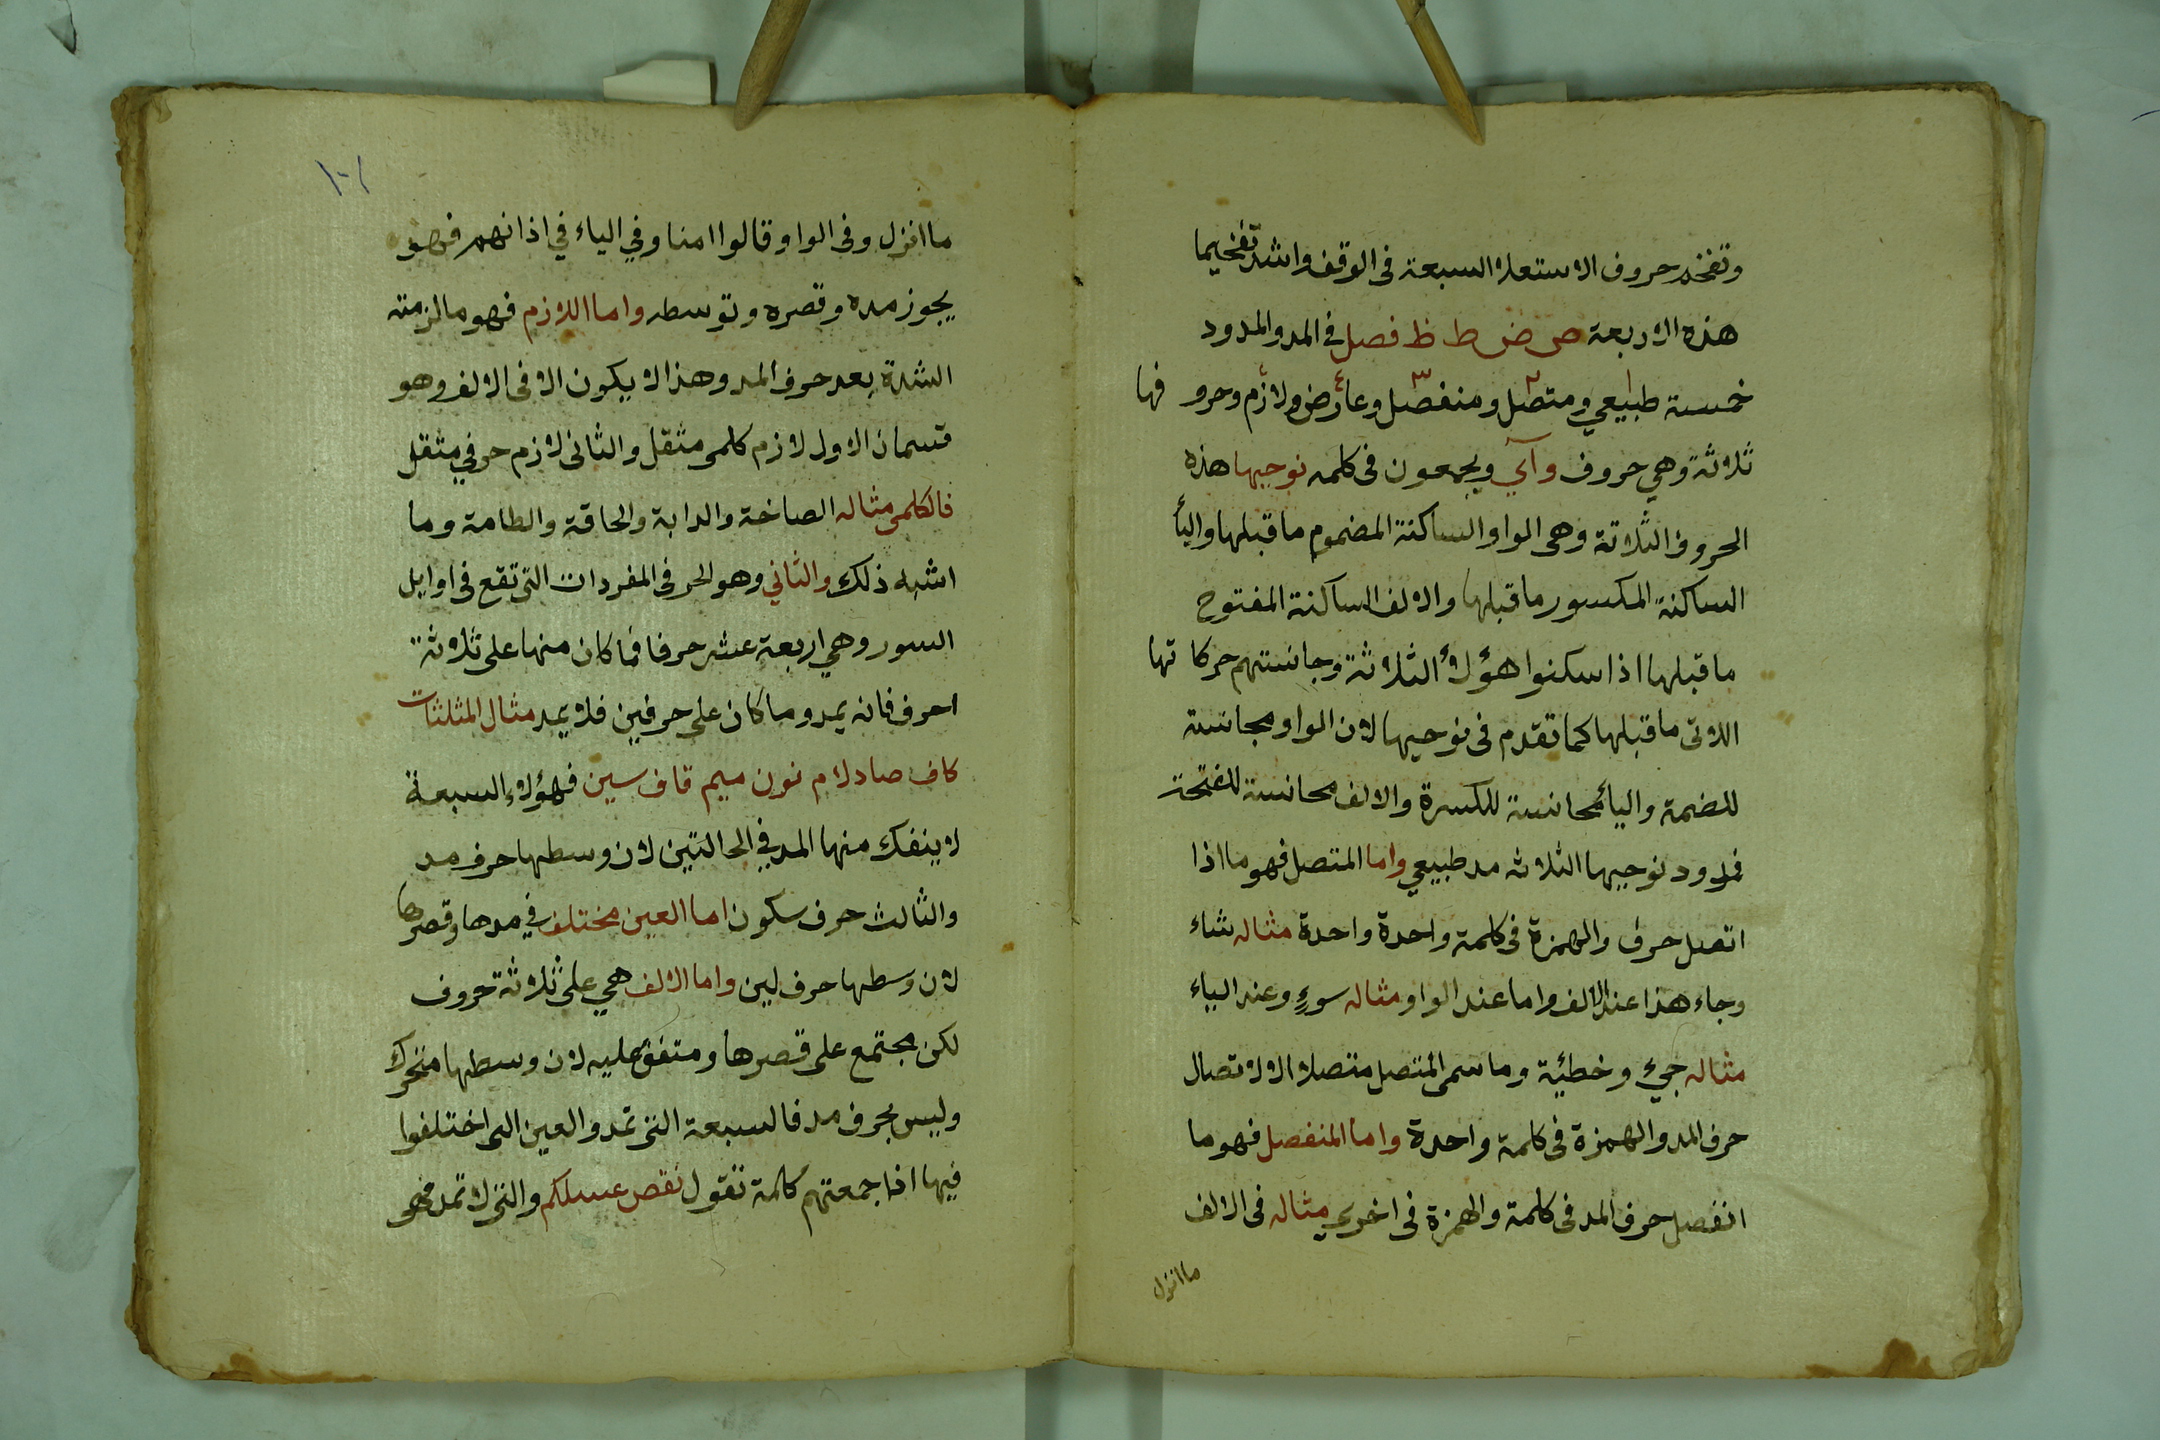 وتفخم حروف الاستعلا السبعة فى الوقف واشد تفخيما
هذه الاربعة ص ض ط ظ فصل فى المد والمدود
خمسة طبيعي ومتصل ومنفصل وعارض ولازم وحروفها
١ ٢ ٣ ٤
ثلاثة وهي حروف وآي ويجمعون فى كلمه نوحيها هذه
الحروف الثلاثة وهى الواو الساكنة المضموم ما قبلها واليأ
الساكنة المكسور ما قبلها والالف الساكنة المفتوح
ما قبلها اذا سكنوا هؤلأ الثلاثة وجانستهم حركاتها
اللاتى ما قبلها كما تقدم فى نوحيها لان الواو مجانسة
للضمة واليأ مجانسة للكسرة والالف مجانسة للفتحة
فمدود نوحيها الثلاثه مد طبيعي واما المتصل فهو ما اذا
اتصل حرف والهمزة فى كلمة واحدة واحدة مثاله شاء
وجاء هذا عند الالف واما عند الواو مثاله سوءٍ وعند الياء
مثاله جيء وخطئية وما سمى المتصل متصلا الا لاتصال
حرف المد والهمزة فى كلمة واحدة واما المنفصل فهو ما
انفصل حرف المد فى كلمة والهمزة فى اخرى مثاله فى الالف
ما انزل
ما انزل وفى الواو قالوا امنا وفي الياء في اذانهم فهو
يجوز مده وقصره وتوسطه واما اللازم فهو ما لزمته
الشدة بعد حرف المد وهذا لا يكون الا فى الالف وهو
قسمان الاول لازم كلمى مثقل والثانى لازم حرفي مثقل
فالكلمى مثاله الصاخة والدابة والحاقة والطامة وما
اشبه ذلك والثاني وهو الحرفى المفردات التى تقع فى اوايل
السور وهي اربعة عشر حرفا فما كان منها على ثلاثة
احرف فانه يمد وما كان على حرفين فلا يمد مثال المثلثات
كاف صاد لام نون ميم قاف سين فهؤلاء السبعة
لا ينفك منها المد في الحالتين لان وسطها حرف مد
والثالث حرف سكون اما العين مختلف في مدها وقصرها
لان وسطها حرف لين واما الالف هي على ثلاثة حروف
لكن مجتمع على قصرها ومتفق عليه لان وسطها متحرك
وليس بحرف مد فالسبعة التى تمد والعين التى اختلفوا
فيها اذا جمعتهم كلمة تقول نقص عسلكم والتى لا تمد فهو